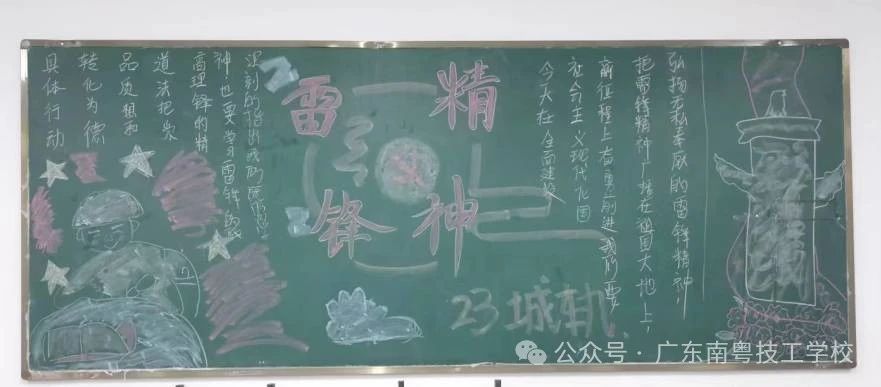 雷锋精神
弘扬无私奉献的雷锋精神，
把雷锋精神广播在祖国大地上，
前征程上奋勇前进我们要
社会主义现代化国
今天在全面建设
深刻的指出我们
神也要学习雷锋的
高理锋的精
道法把
品质想和
转化为德
具体行动
23城轨
公众号·广东南粤技工学校